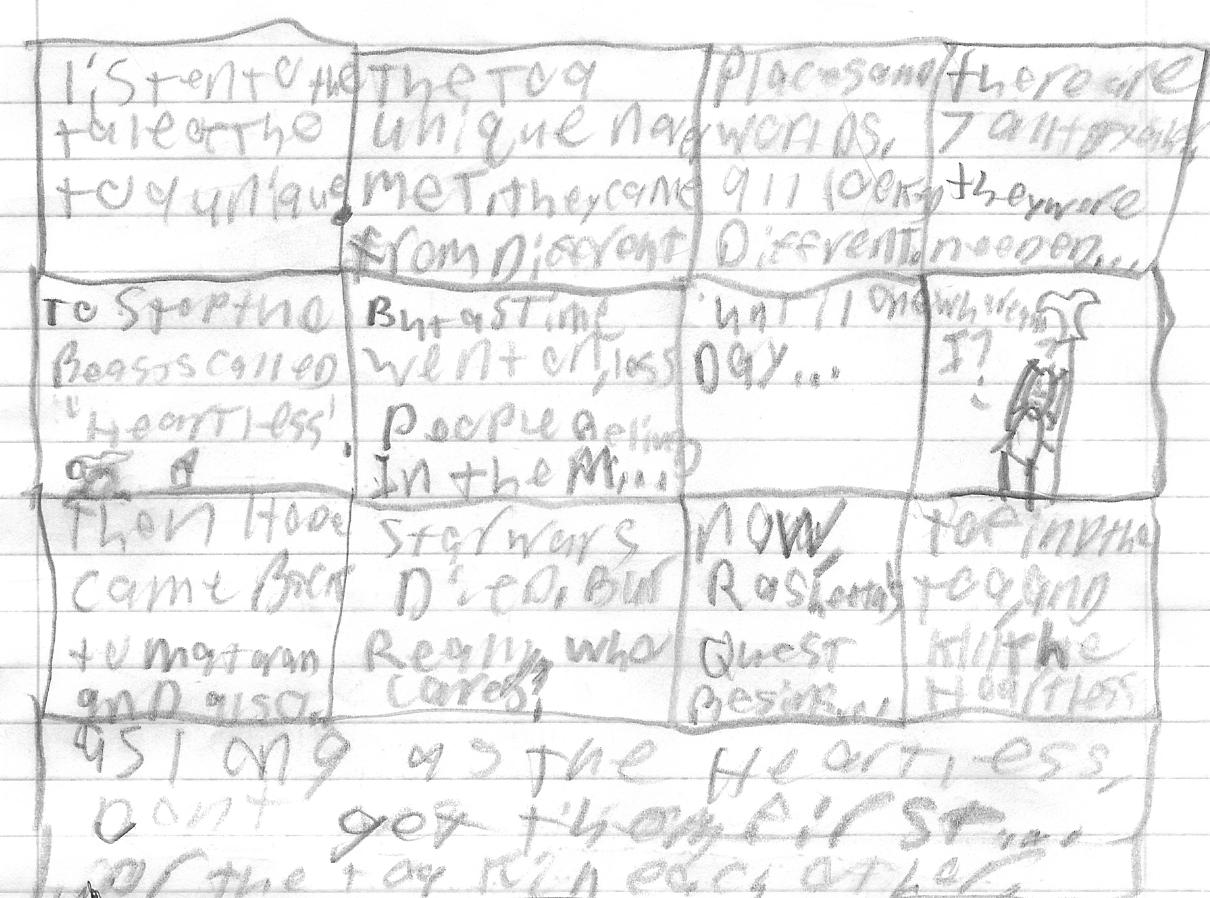 listen to the
tale of the
toa unique
The Toa
unique nag
met, they came
from Different
Places and
worlds,
all looking
Different.
there are
7 all together,
they were
needed...
To stop the
Beasts called
"Heartless"
But as Time
went on, less
People Believed
In them...
until one
Day...
where am
I?
Then Hope
came Back
to matoran
and also..
Star wars
DieD, But
Really, who
cares?
now,
Quest
Begins...
to find the
toa, and
kill the
Heartless
as long as the Heartless,
Dont get them first....
...or the toa kill each other.